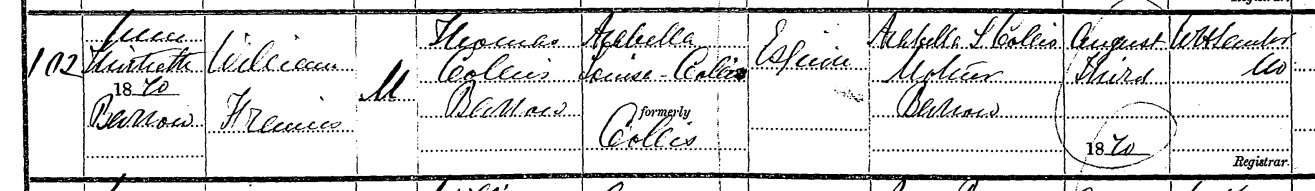 102
June
Thirtieth
1870
Barrow
William
Francis
M
Thomas
Collis
Barrow
Arabella
Louisa - Collis
formerly
Collis
Esquire
Arabella L Collis
Mother
Barrow
August
Third
1870
Registrar.